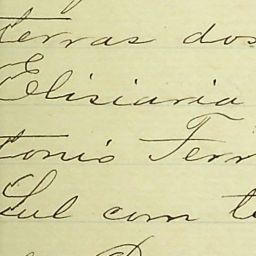 terras dos
Elisiaria
tonio Ferr
Sul com te